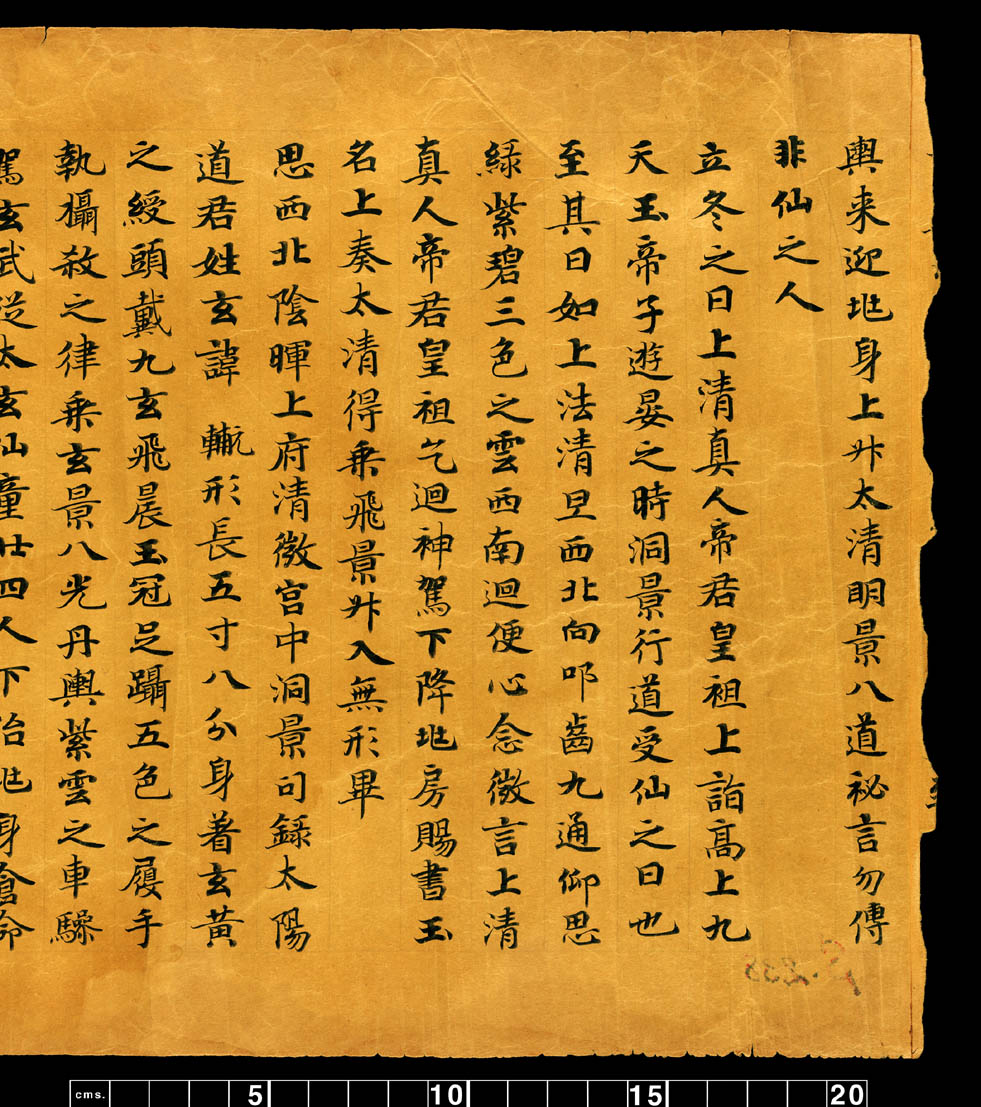 輿来迎𡉏身上升太清明景八道祕言勿傳
非仙之人
立冬之日上清真人帝君皇祖上詣髙上九
天玉帝子遊晏之時洞景行道受仙之日也
至其日如上法清旦西北向叩齒九通仰思
緑紫碧三色之雲西南迴便心念微言上清
真人帝君皇祖乞迴神駕下降𡉏房賜書玉
名上奏太清得乗飛景升入無形畢
思西北陰暉上府清微宫中洞景司録太陽
道君姓玄諱 形長五寸八分身著玄黄
之綬頭戴九玄飛晨玉冠足躡五色之履手
執攝敘之律乗玄景八光丹輿紫雲之車驂
駕玄武従太玄仙童廿四人下治𡉏身倉命
cms. 5 10 15 20